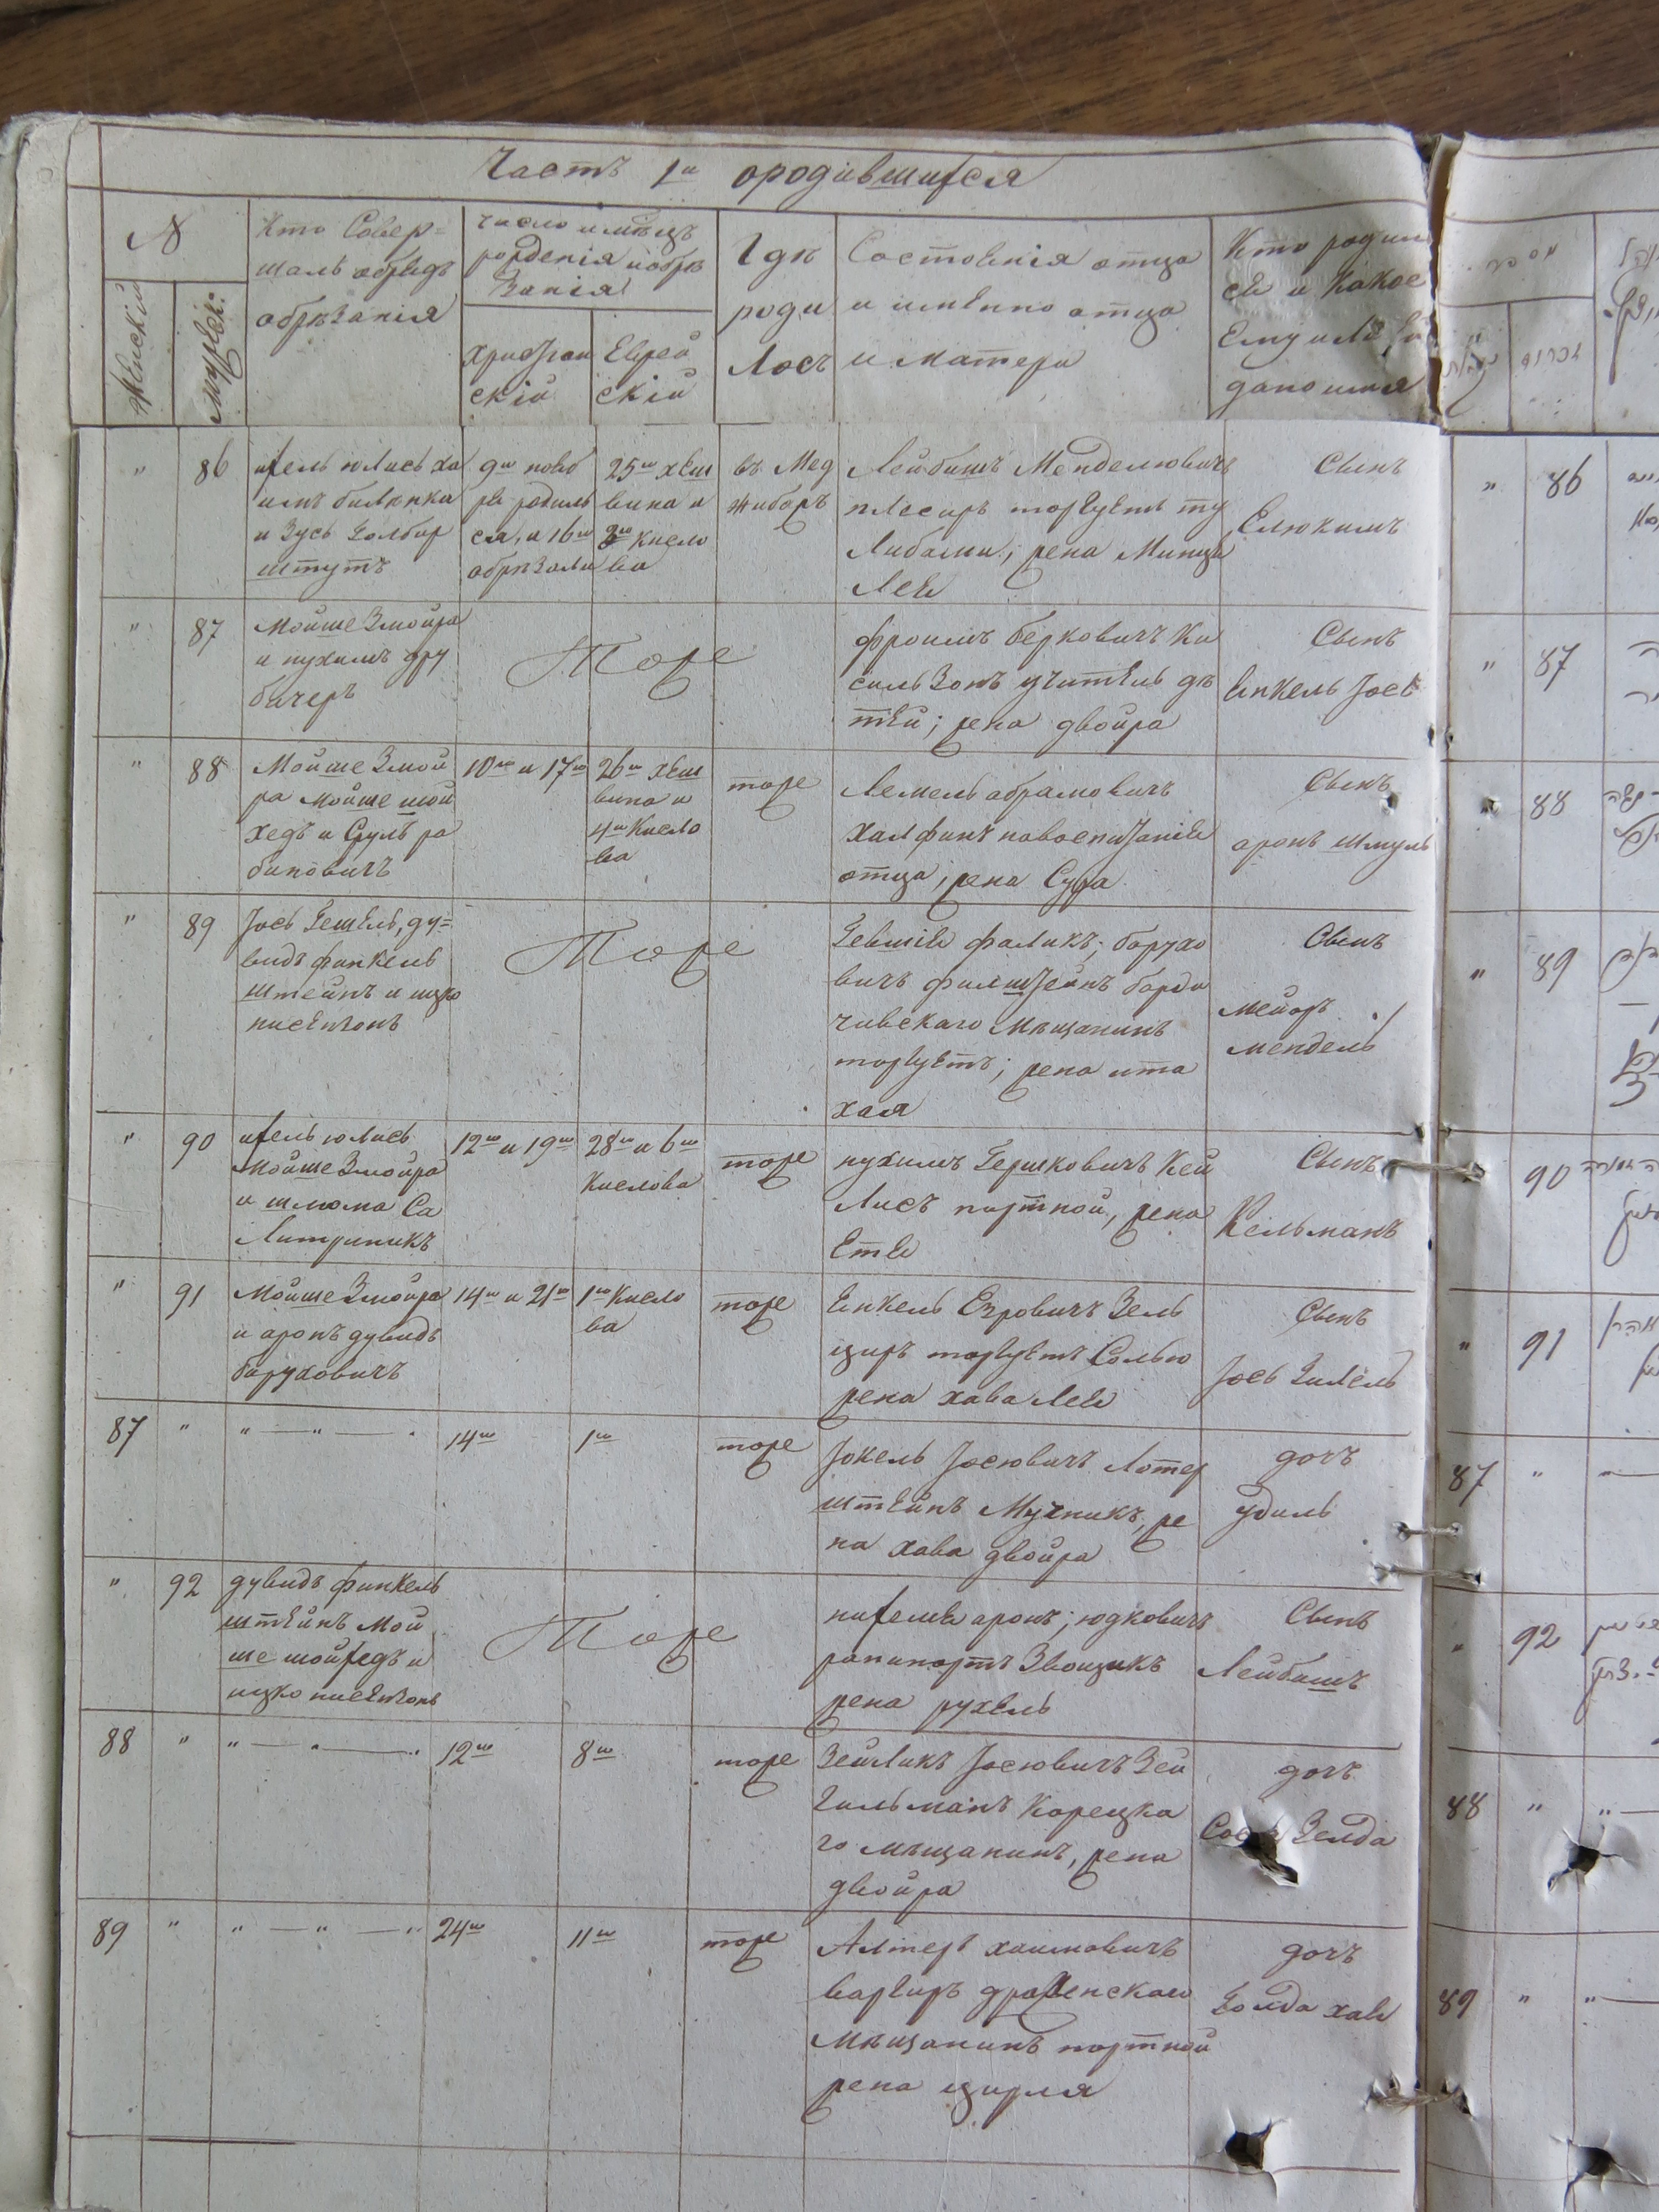 Часть 1я ородившихся
№
Женскій
Мужеск:
Кто Совер=
шалъ обрядъ
обрѣзанія
число и мѣцъ
рожденія и обрѣ
занія
Христіан
скій
Еврей
скій
Гдѣ
роди
лось
Состоянія отца
и имѣнно отца
и матери
Кто родил
ся и какое
Ему или Ей
дано имя
" 86
ихель юлись ха
имъ билѣнка
и Зусь Голбар
штутъ
9го нояб
ря родиль
ся, и 16го
обрѣзали
25го хеш
вина и
3го Кисло
ва
въ Мед
жиборъ
Лейбишъ Менделювичъ
торгуетъ ру
Либами; жена Минця
Лея
Сынъ
Елюкимъ
" 87
Мойше Змойра
и нухимъ дру
бичеръ
Тоже
фроимъ берковичъ Ки
сильзонъ учитель дѣ
тей; жена двойра
Сынъ
Янкель Јось
" 88
Мойше Змой
ра мойше шой
хедъ и Сруль ра
биновичъ
10го и 17го
26го хеш
вина и
4го Кисло
ва
тоже
Лемель абрамовичъ
халфинъ
отца, жена Сура
Сынъ
аронъ шмуль
" 89
Јось Гешель, ду=
видъ финкель
штейнъ и ицко
нисензонъ
Тоже
Гевшія фаликъ; борухо
вичъ филштейнъ борди
чивскаго мѣщанинъ
торгуетъ; жена ита
хая
Сынъ
мейоръ
мендель
" 90
ихель юлись
Мойше Змойра
и шлюма Са
Литрникъ
12го и 19го
28го и 6го
Кислова
тоже
нухимъ Гершковичъ Кей
Лисъ портной, жена
Етя
Сынъ
Кельманъ
" 91
Мойше Змойра
и аронъ дувидъ
боруховичъ
14го и 21го
1го Кисло
ва
тоже
Янкель Езровичъ Зель
циръ торгуетъ Солью
жена хава Лея
Сынъ
Јось Зимель
87 " " — " — "
14го
1го
тоже
Јокель Јосювичъ Лотер
штейнъ Мучникъ, же
на хава двойра
дочъ
удиль
" 92
дувидъ финкель
штейнъ Мой
ше шойхедъ и
ицко нисензонъ
Тоже
нихемя аронъ; юдковичъ
рапипортъ Звощикъ
жена рухель
Сынъ
Лейбишъ
88 " " — " — "
12го
8го
тоже
Зейликъ Јосювичъ Зей
Гильманъ Корецка
го мѣщанинъ, жена
двойра
дочъ
Зелда
89 " " — " — "
24го
11го
тоже
Алтеръ хаимовичъ
варгиръ
мѣщанинъ портной
жена цирля
дочъ
Голда хая
" 86
" 87
" 88
" 89
90
" 91
87 "
" 92
88 "
89 "